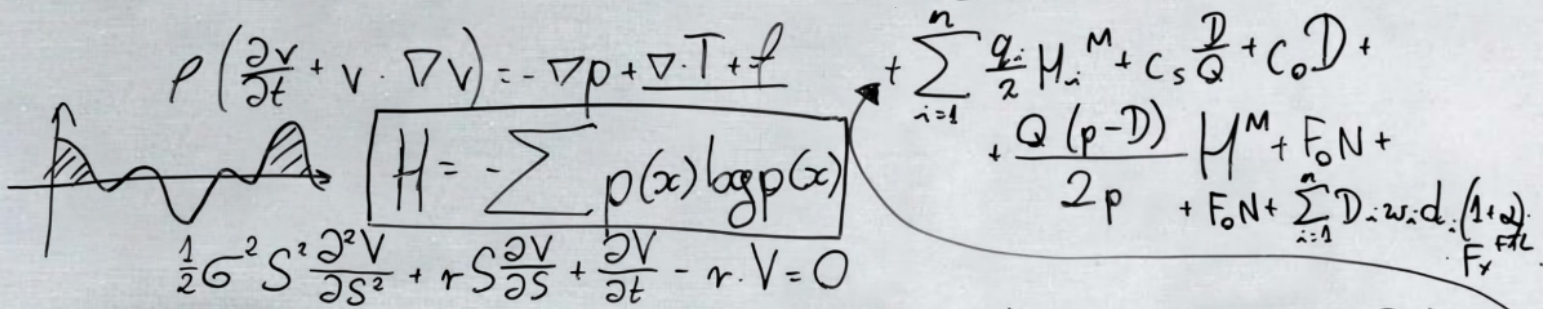 ρ(∂v/∂t + v · ∇v) = -∇p + ∇·T + f
H = -∑ p(x) log p(x)
½σ²S² ∂²V/∂S² + rS ∂V/∂S + ∂V/∂t - r·V = 0
+ ∑_{i=1}^{n} q_i/2 H_i^M + C_s D/Q + C_o D +
+ Q(p-D)/2p H^M + F_o N +
+ F_o N + ∑_{i=1}^{n} D_i w_i d_i (1+α)